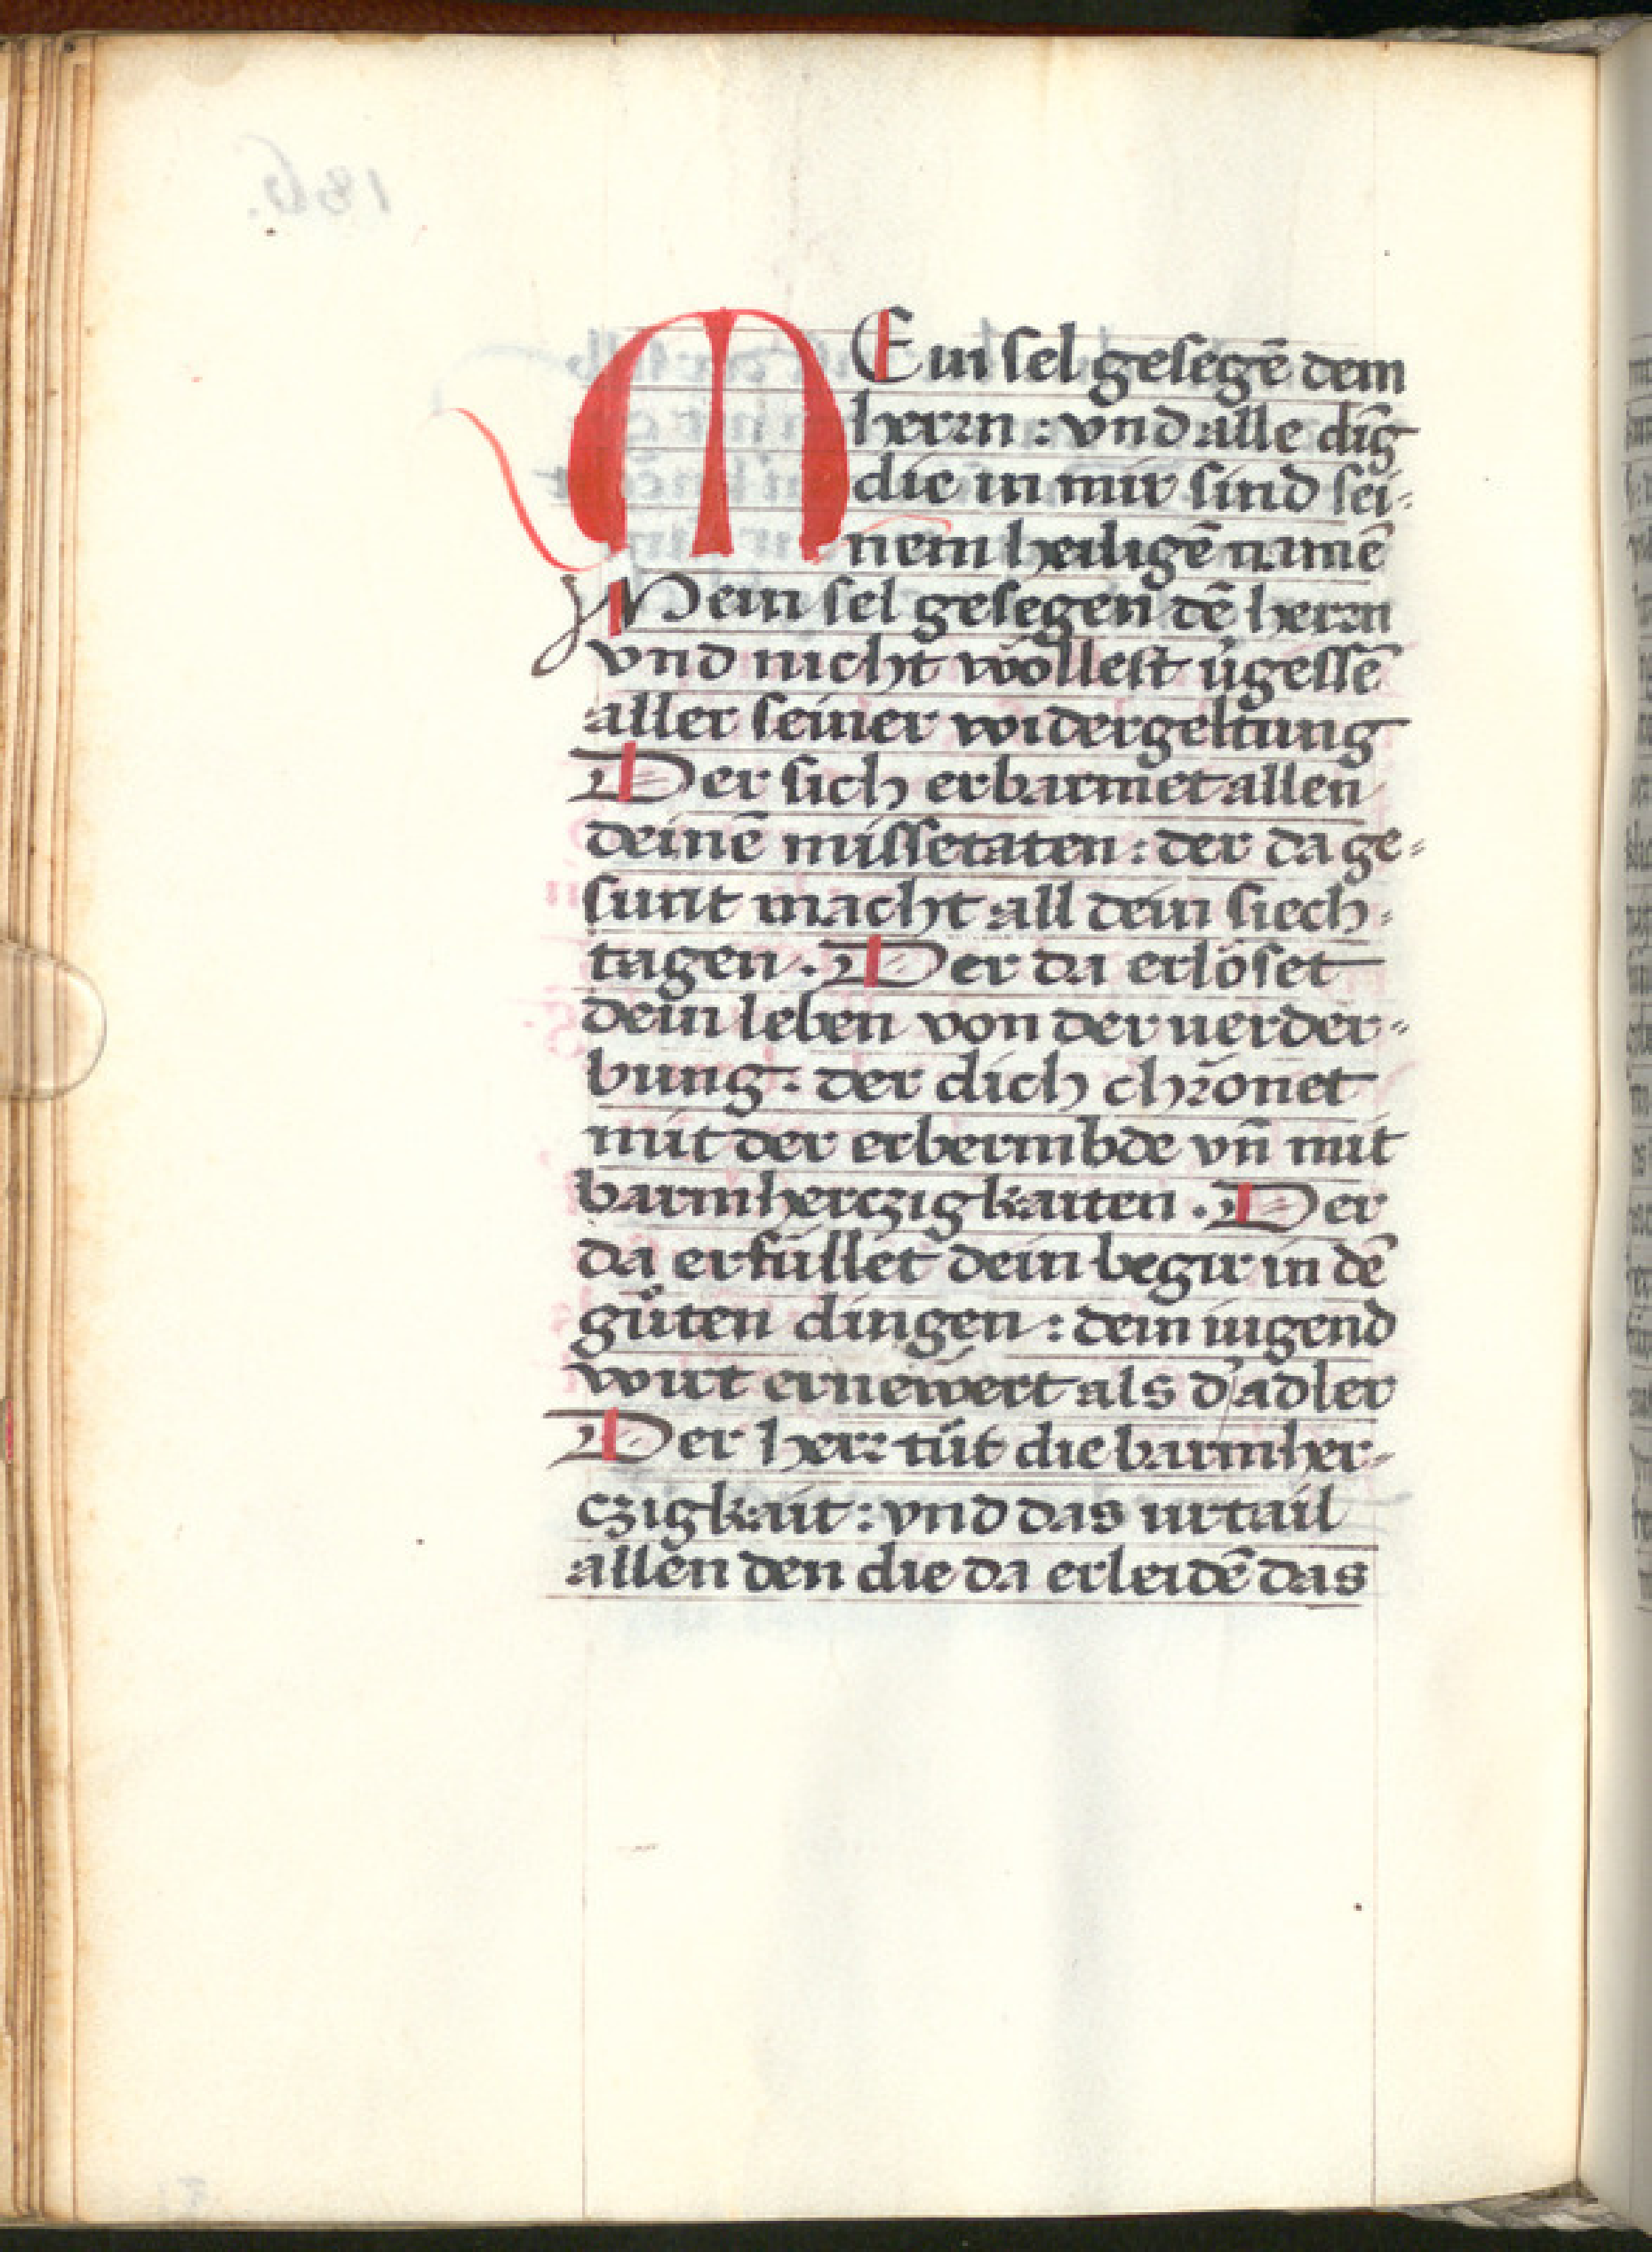 MEin sel gesegē dem
herrn : vnd alle dīg
die in mir sind sei-
nem heiligē namē
Mein sel gesegen dē herrn
vnd nicht wöllest v̓gessē
aller seiner widergeltung
Der sich erbarmet allen
deinē missetaten : der da ge-
sunt macht all dein siech-
tagen . Der da erlöset
dein leben von der uerder-
bung : der dich chrönet
mit der erbermbde vn̄ mit
barmherczigkaiten . Der
da erfüllet dein begir in dē
gůten dingen : dein iugend
wirt ernewert als d̓ adler
Der herr tůt die barmher-
czigkait : vnd das urtail
allen den die da erleidē das